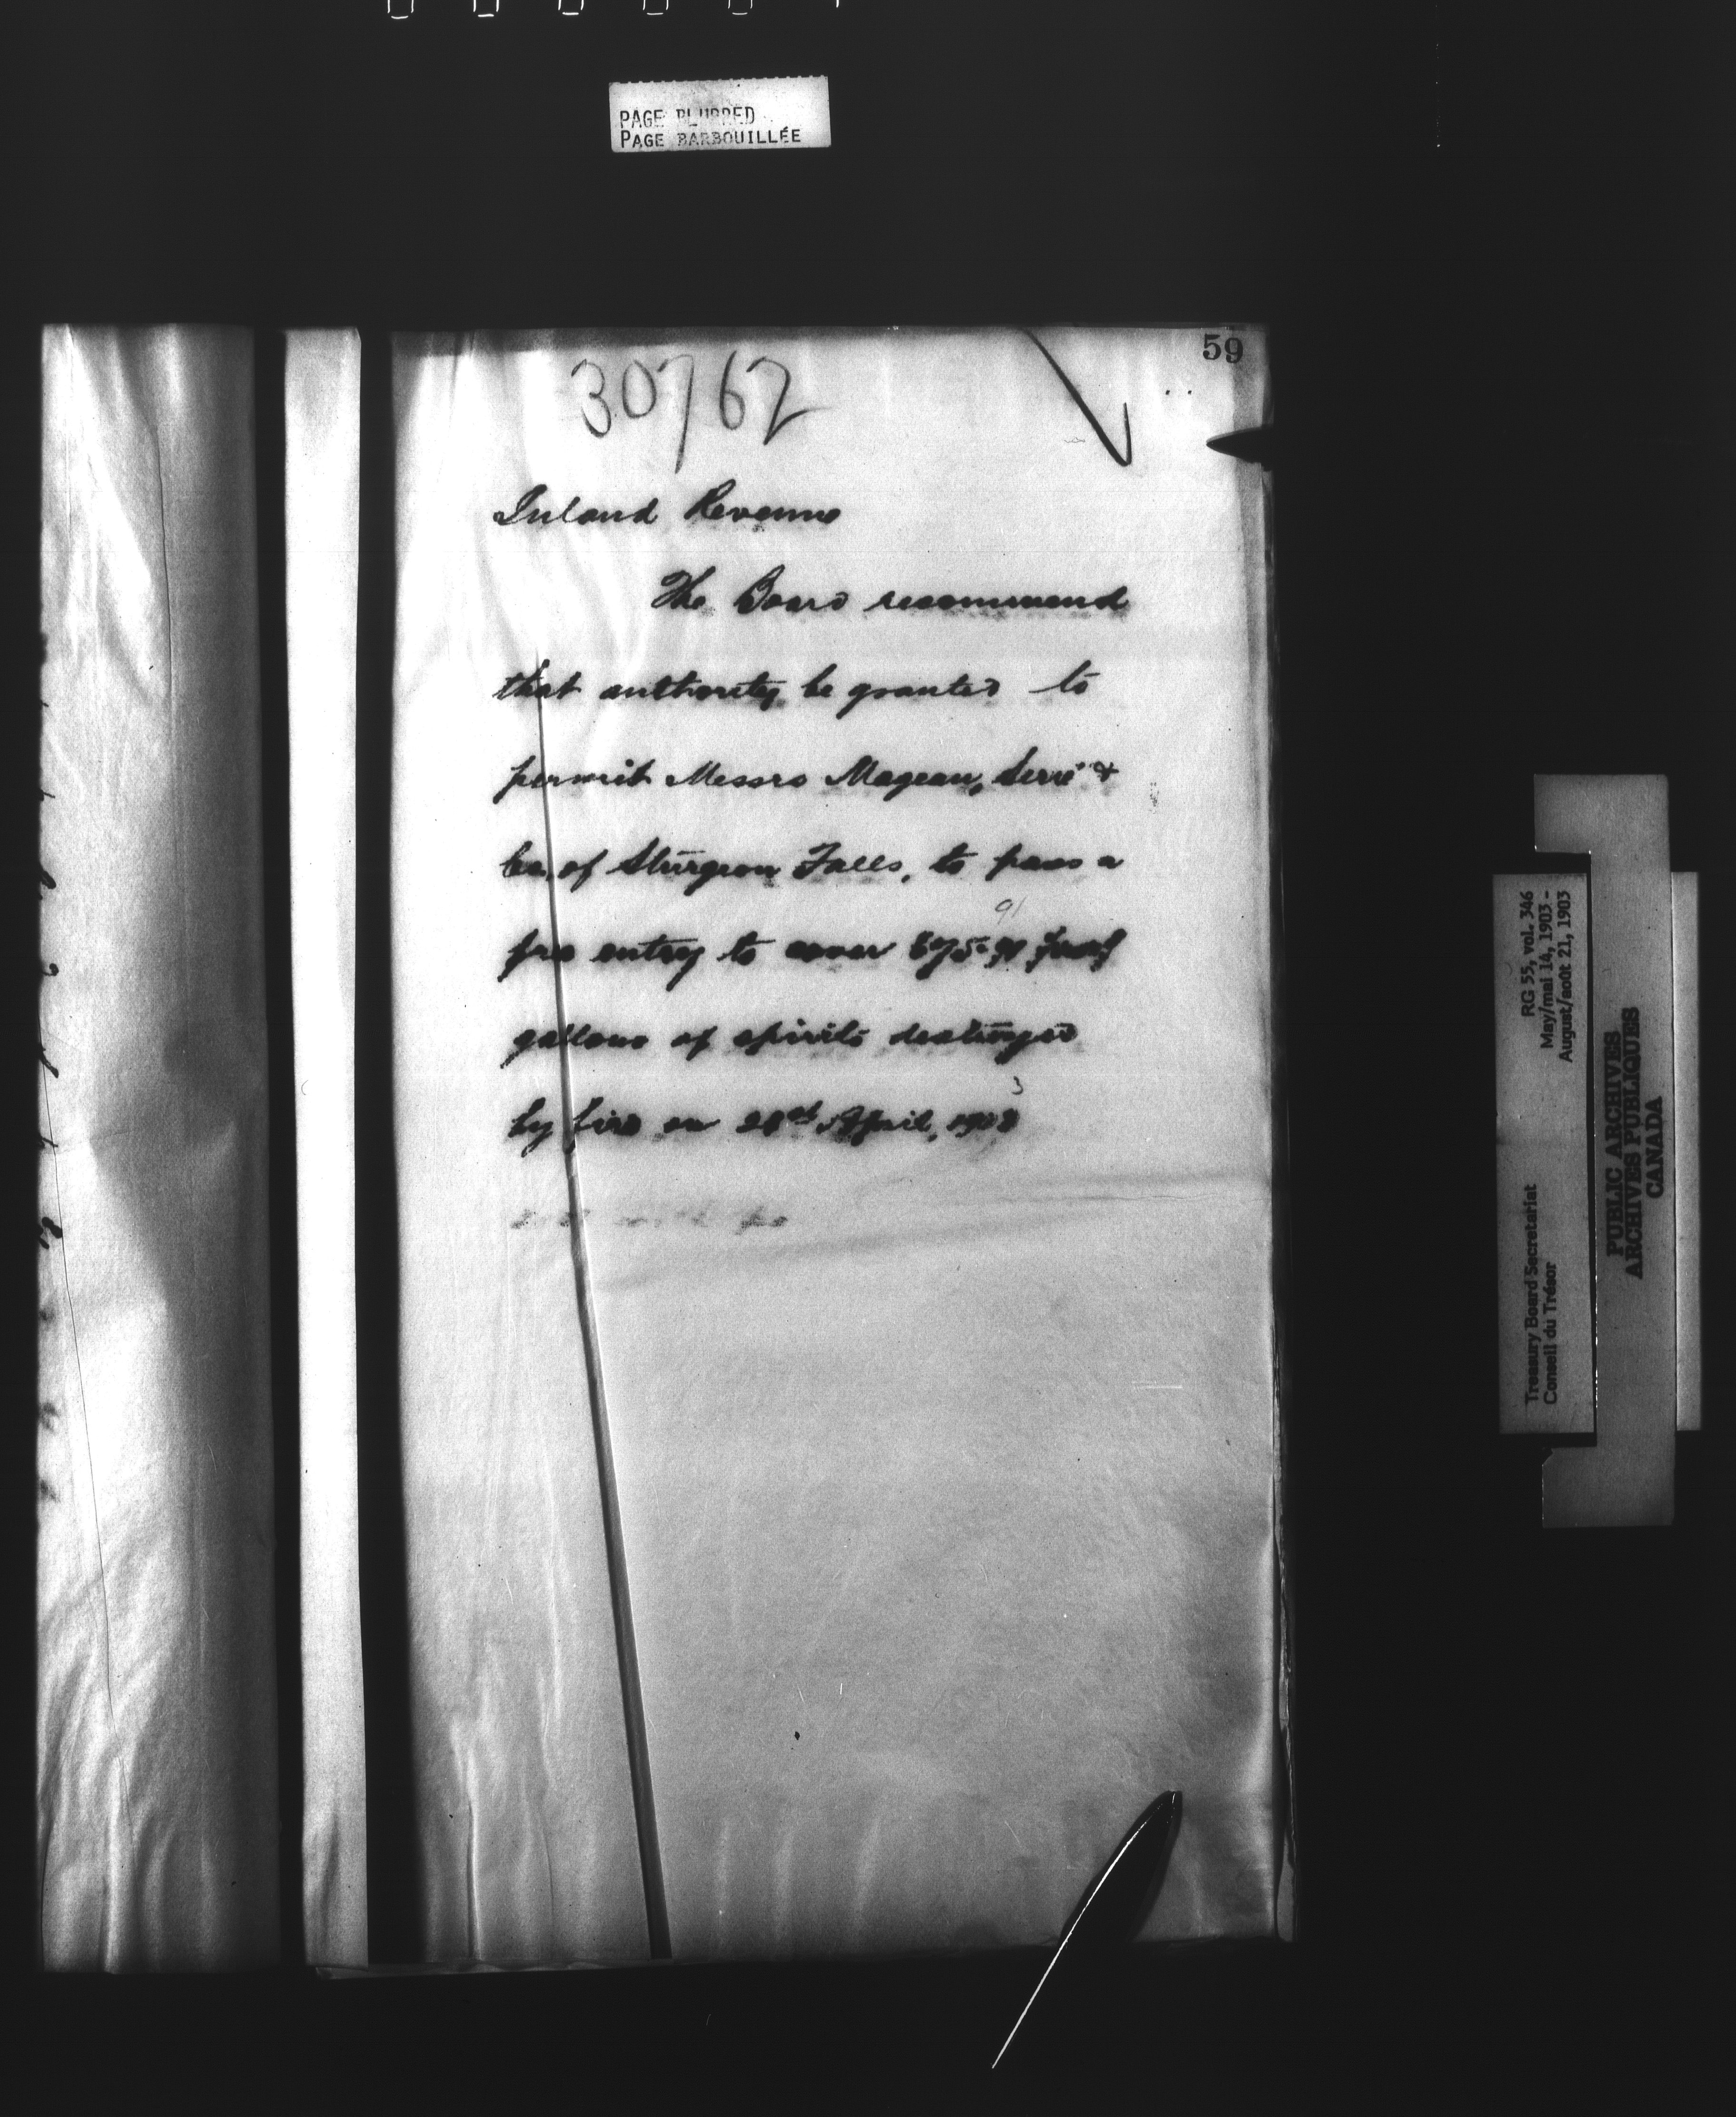 PAGE BLURRED
PAGE BARBOUILLÉE
59
30762
Inland Revenue
The Board recommend
that authority be granted to
permit Messrs Mageau, Serré &
Co. of Sturgeon Falls, to pass a
91
free entry to cover proof
gallons of spirits destroyed
3
by fire on April, 1903
RG 55, vol. 346
May/mai 14, 1903 -
August/août 21, 1903
Treasury Board Secretariat
Conseil du Trésor
PUBLIC ARCHIVES
ARCHIVES PUBLIQUES
CANADA